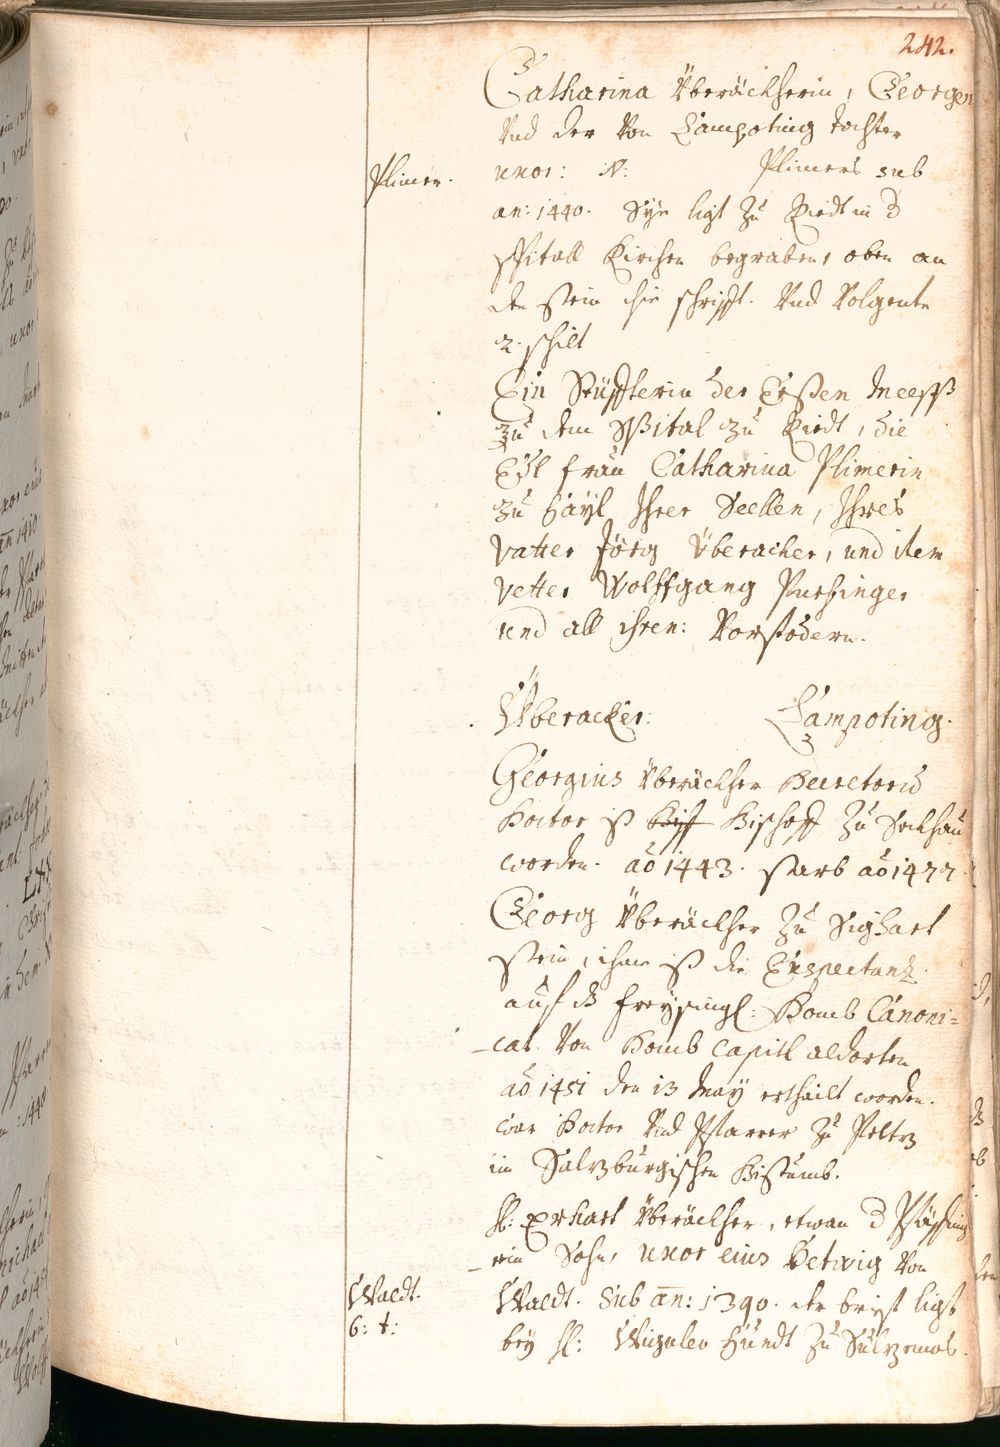 242.
Catharina Überäckherin, Georgen
Vnd der Von Lampoting dochter
Plimer.
uxor: N: Plimers sub
an: 1440. Sye ligt zu Riedt in d
spitall Kirchen begraben, oben an
den stein die schrifft. Vnd Volgente
2. schilt
Ein Stüffterin der Ersten Meess
zu dem Spital zu Riedt, die
Edl frau Catharina Plimerin
zu Hayl Ihrer Seellen, Ihres
vatter Jörg Überacher, und dem
vetter Wolffgang Purfinger
und all ihren: Vorfodern.
Überacker: Lampoting.
Georgius Überäckher Decretorū
Doctor ist Biss Bischoff zu Seckhau
worden. aō 1443. starb aō 1477
Georg Überäckher zu Sighart
stein, ihme ist die Expectanz
auf ds freysingl: Domb Canoni=
cat Von Domb Capitl aldorten
aō 1451 den 13 May erthailt worden.
war Doctor Vnd Pfarrer zu Peltz
im Salzburgischen Bistumb.
H: Erhart Überäckher, etwan d
ein Sohn, uxor eius Hedwig Von
Waldt.
Waldt. Sub an: 1390. der brief ligt
6: t:
bey H: Wiguleo Hundt zu Sulzemos.